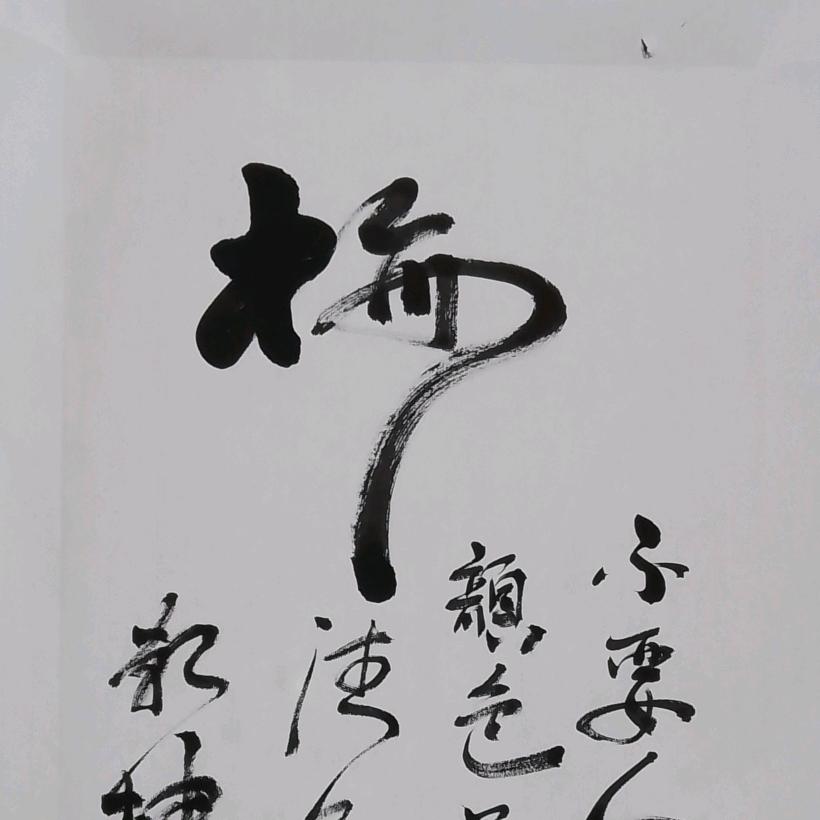 梅
不要人
顏色
清
乾坤